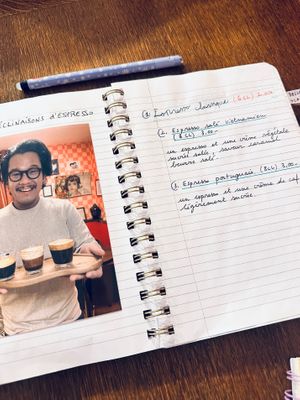 CLINAISONS D'ESPRESSO
① Espresso classique (6cl) 2.00
②. Espresso salé vietnamien
(8cl) 3.00.-
un espresso et une crème végétale
sucrée salée, saveur caramel
beurre salé.
③. Espresso portuguais (8cl) 3.00
un espresso et une crème de caf
légèrement sucrée.